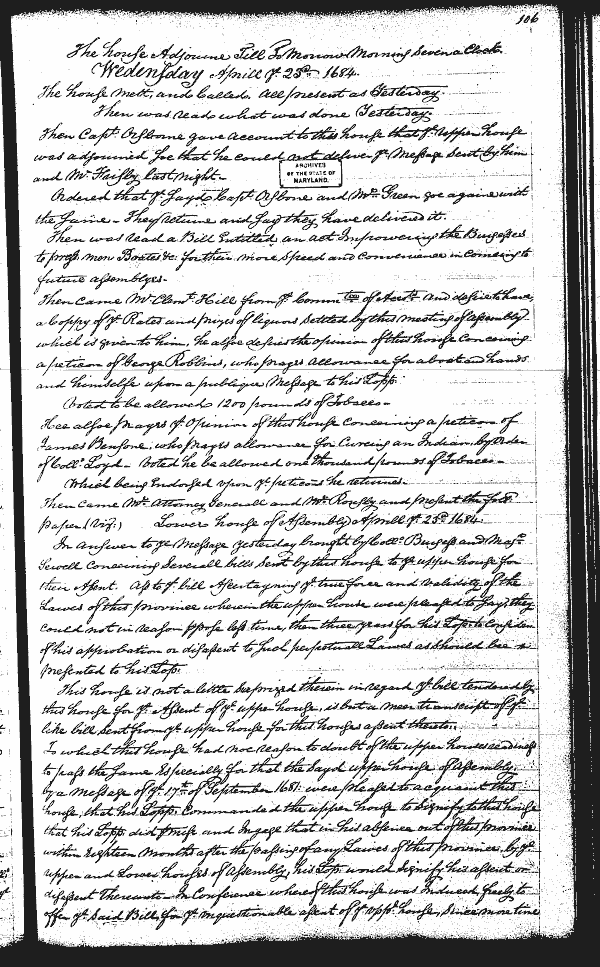 106
The house Adjourne Till To Morrow Morning Seven a Clock.
Wedensday Aprill ye 23d 1684.
The house Mett, and Called. All present as Yesterday.
Then was read what was done Yesterday.
Then Capt. Osborne gave account to this house that ye upper house
was adjourned soe that he could not deliver ye Message Sent by him
and Mr last night.
ARCHIVES
OF THE STATE OF
MARYLAND.
Ordered that ye Sayd Capt. Osborne and Mr. Green goe againe with
the same - They returne and say they have delivered it.
Then was read a Bill Entitled, an act Impowering the Burgesses
to press men Boates &c: for their more Speed and Convenience in comeing to
future assemblyes.
Then came Mr. Clemt. Hill from ye Committee of Accts. and desire to have
a Coppy of ye Rates and prizes of liquors settled by this meeting of Assembly
which is given to him, he alsoe desires the opinion of this house Concerning
a peticon of George Robbins, who prayes allowance for a boat and hands
and himselfe upon a publique Message to his Lopp.
Voted to be allowed 1200 pounds of Tobacco -
Hee alsoe prayes ye Opinion of this house concerning a peticon of
James Bensone, who prayes allowance for Cureing an Indian, by Order
of Coll. Loyd - Voted he be allowed one thousand pounds of Tobacco -
Which being Endorsed upon ye peticons he returnes.
Then came Mr. Attorney Generall and Mr. Rousby and present the foll:
paper (Viz:) Lower house of Assembly Aprill ye 23d 1684.
In answer to ye Message yesterday brought by Coll. Burgess and Majr.
Sewell Concerning Severall bills Sent by this house to ye upper house for
their Assent. As to ye bill Ascertayning ye true force and validity of the
Lawes of this province wherein the upper house were pleased to say, they
could not in reason ppose less time, then three years for his Lopp to Consider
of his approbation or disassent to such perpetuall Lawes as should bee
presented to his Lopp.
This house is not a little Surprized therein in regard ye bill tendered by
this house for ye Assent of ye upper house, is but a meer transcript of ye
like bill sent from ye upper house for this houses assent thereto.
To which this house had noe reason to doubt of the upper houses readiness
to pass the same Especially for that the Sayd upper house of Assembly,
by a Message of ye 17th of September 1681. were pleased to acquaint this
house, that his Lopp: Commanded the upper house to Signify to this house
that his Lopp did pmise and Ingage that in his absence out of this province
within Eighteen Months after the passing of any Lawes of this province, by ye
upper and Lower houses of Assembly, his Lop: would signify his assent or
disassent Thereunto - In Confidence whereof this house was Induced, freely to
offer ye Said Bill, for ye unquestionable assent of ye uppr. house, Since more time